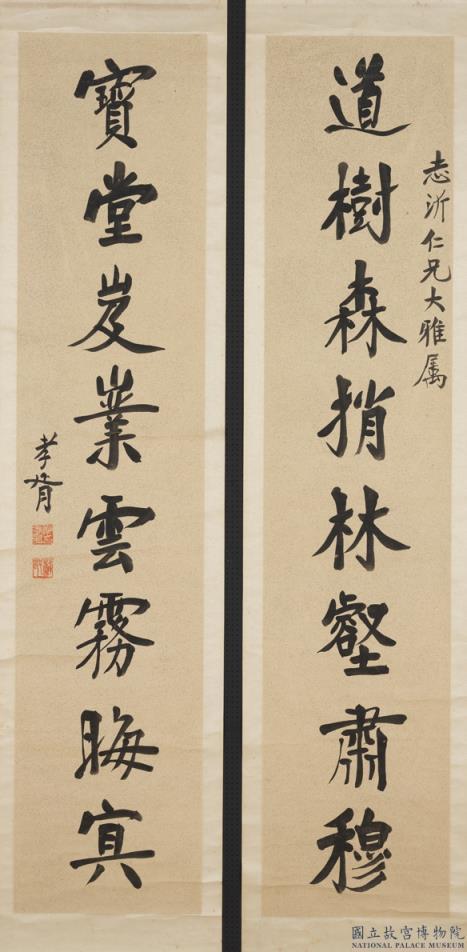 志沂仁兄大雅属
道樹森捎林壑肅穆
寶堂岌嶪雲霧晦冥
孝胥
國立故宮博物院
NATIONAL PALACE MUSEUM